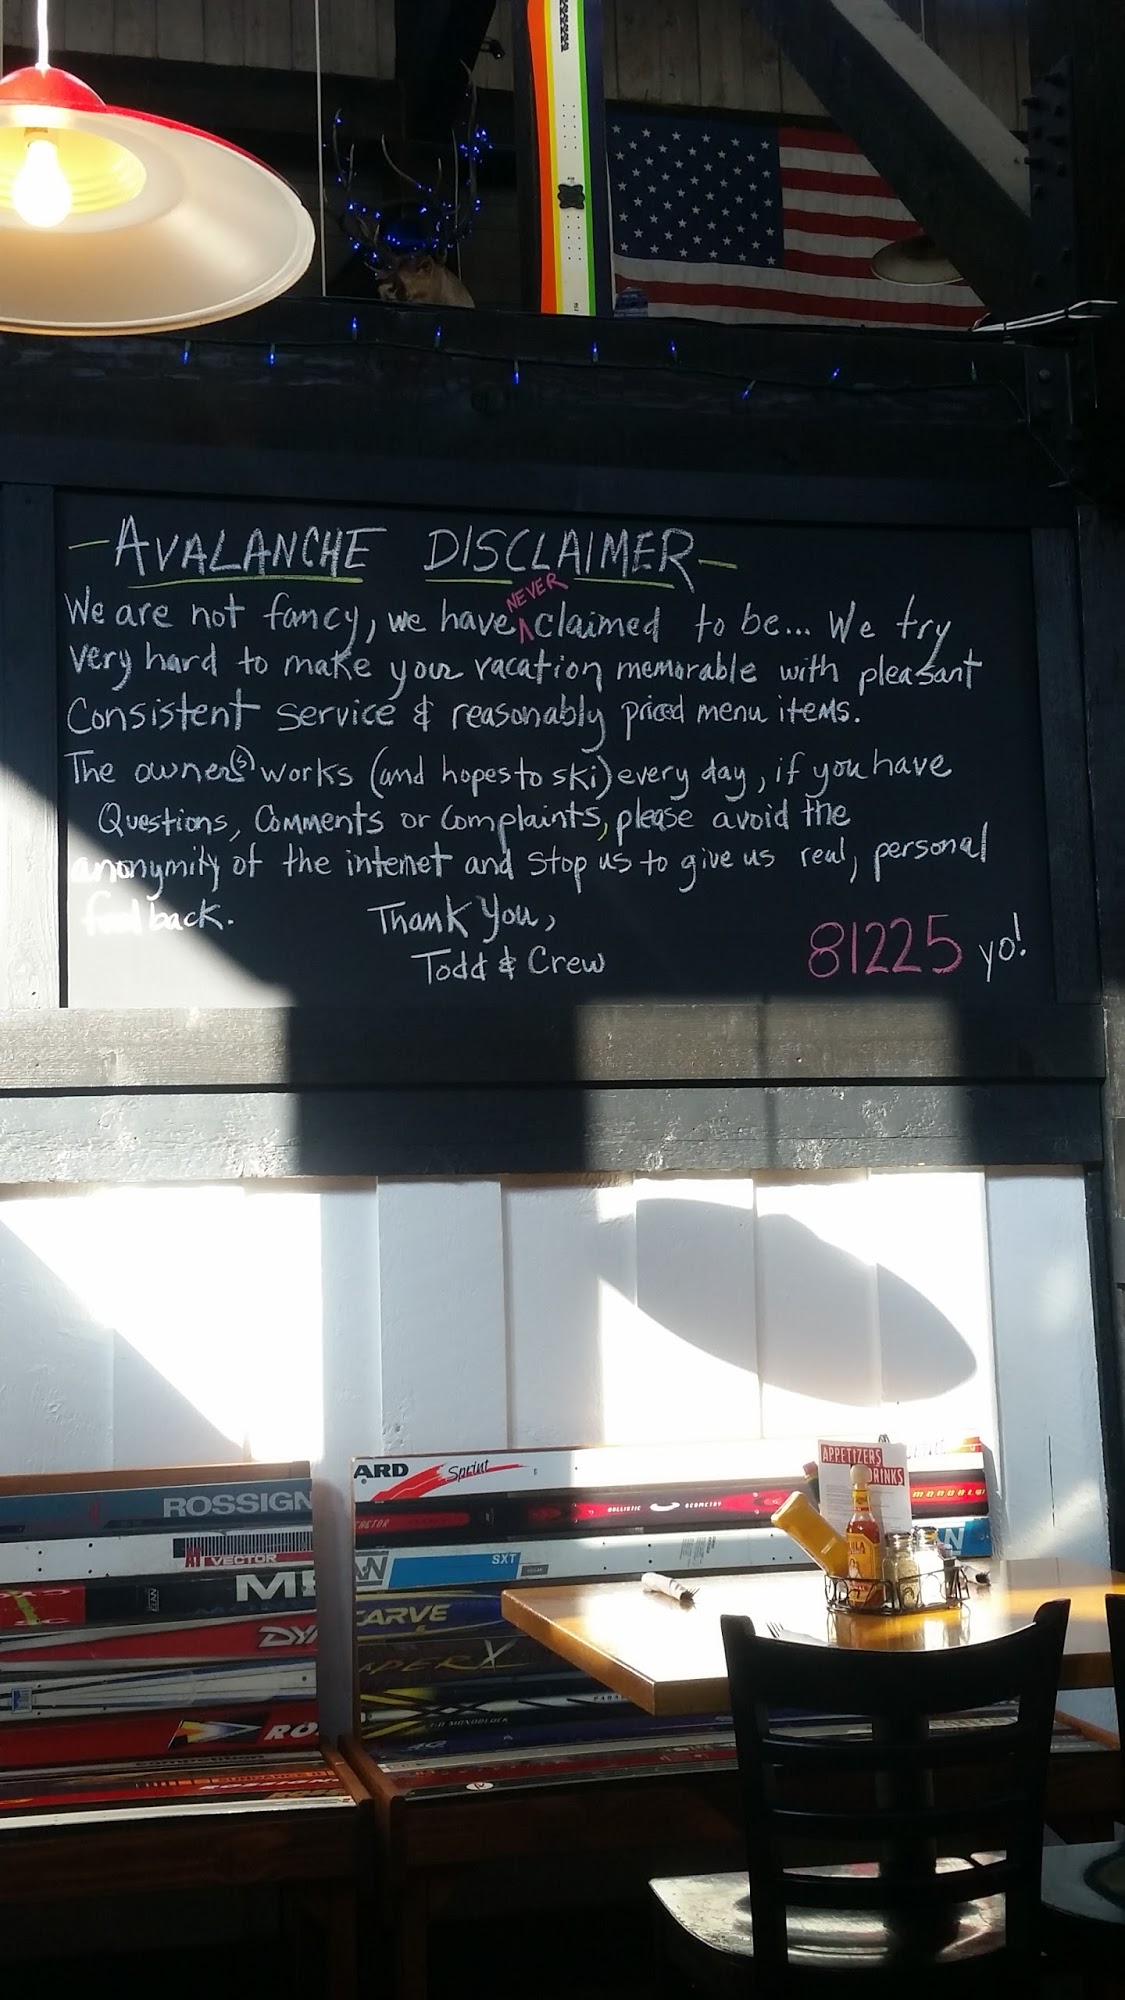 - AVALANCHE DISCLAIMER -
We are not fancy, we have NEVER claimed to be... We try
very hard to make your vacation memorable with pleasant
Consistent service & reasonably priced menu items.
The owner(s) works (and hopes to ski) every day, if you have
Questions, Comments or Complaints, please avoid the
anonymity of the internet and stop us to give us real, personal
feedback.
Thank You,
Todd & Crew
81225 yo!
APPETIZERS
DRINKS
ARD Sprint
ROSSIGN
BALLISTIC GEOMETRY
VECTOR
SXT
CARVE
DY
RO